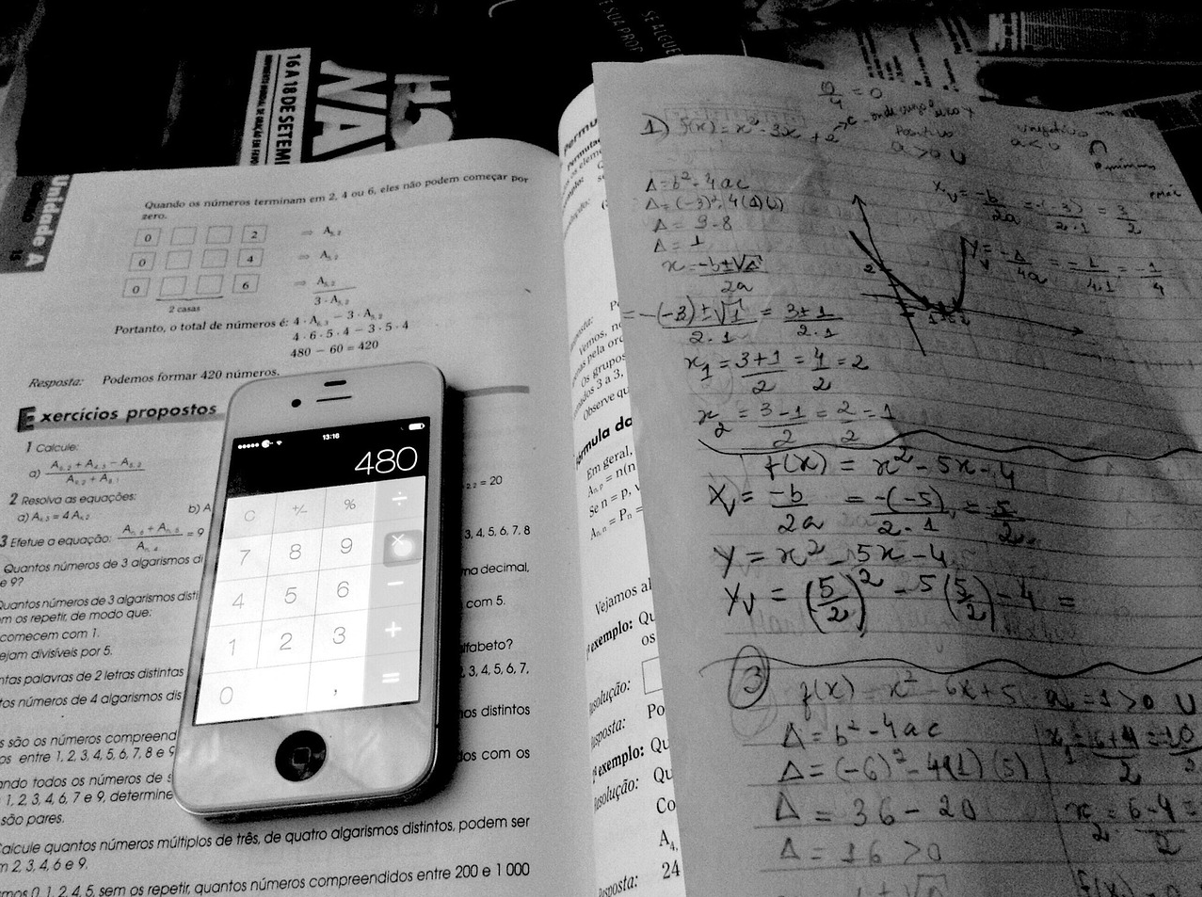 16 A 18 DE SETEM
NA
SE ALGUÉ
Unidade A
Quando os números terminam em 2, 4 ou 6, eles não podem começar por
zero.
0 2 ⇒ A₅,₂
0 4 ⇒ A₅,₂
0 6 ⇒ A₅,₂
2 casas
3 · A₅,₂
Portanto, o total de números é: 4 · A₆,₃ − 3 · A₅,₂
4 · 6 · 5 · 4 − 3 · 5 · 4
480 − 60 = 420
Resposta: Podemos formar 420 números.
Exercícios propostos
1 Calcule:
a)
2 Resolva as equações:
a) b) A
3 Efetue a equação: = 9
Quantos números de 3 algarismos di
e 9?
Quantos números de 3 algarismos disti
m os repetir, de modo que:
comecem com 1.
ejam divisíveis por 5.
ntas palavras de 2 letras distintas
tos números de 4 algarismos dis
s são os números compreend
os entre 1, 2, 3, 4, 5, 6, 7, 8 e 9
ando todos os números de s
1, 2, 3, 4, 6, 7 e 9, determine
são pares.
Calcule quantos números múltiplos de três, de quatro algarismos distintos, podem ser
m 2, 3, 4, 6 e 9.
mos 0, 1, 2, 4, 5, sem os repetir, quantos números compreendidos entre 200 e 1 000
= 20
3, 4, 5, 6, 7, 8
ma decimal,
com 5.
lfabeto?
2, 3, 4, 5, 6, 7,
mos distintos
dos com os
13:16
480
C +/- % ÷
7 8 9 ×
4 5 6 −
1 2 3 +
0 , =
Permu
Permutaç
Vemos, n
Os grupos
nados 3 a 3,
Observe qu
Fórmula da
Em geral,
Aₙ,ₚ = n(n
Se n = p, v
Aₙ,ₙ = Pₙ =
Vejamos al
exemplo: Qu
os
Resolução:
Resposta: Po
exemplo: Qu
Resolução: Qu
Co
A₄,
Resposta: 24
1) f(x) = x² - 3x + 2
a > 0 U
a < 0 ∩
Δ = b² - 4ac
Δ = (-3)² - 4(1)(2)
Δ = 9 - 8
Δ = 1
x = -b ± √Δ / 2a
= -(-3) ± √1 / 2·1 = 3 ± 1 / 2·1
x₁ = 3+1 / 2 = 4/2 = 2
x₂ = 3-1 / 2 = 2/2 = 1
Xv = -b/2a = -(-3)/2·1 = 3/2
Yv = -Δ/4a = -1/4·1 = -1/4
f(x) = x² - 5x - 4
Xv = -b/2a = -(-5)/2·1 = 5/2
Y = x² - 5x - 4
Yv = (5/2)² - 5(5/2) - 4 =
3 f(x) = x² - 6x + 5 a = 1 > 0 U
Δ = b² - 4ac
Δ = (-6)² - 4(1)(5)
Δ = 36 - 20
Δ = 16 > 0
x₁ = 6+4 / 2 = 10/2
x₂ = 6-4 / 2 =